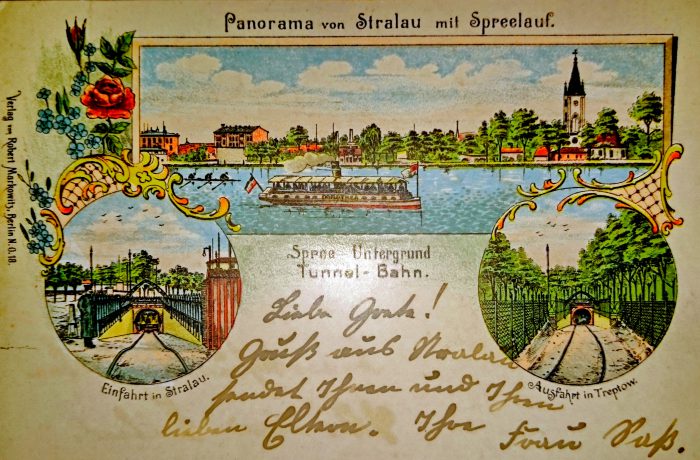 Panorama von Stralau mit Spreelauf.
Verlag von Robert Markowitz, Berlin N.O. 18.
Spree-Untergrund
Tunnel-Bahn.
Einfahrt in Stralau.
Ausfahrt in Treptow.
Liebe Grete!
Gruß aus Stralau
sendet Ihnen und Ihren
lieben Eltern. Ihre Frau